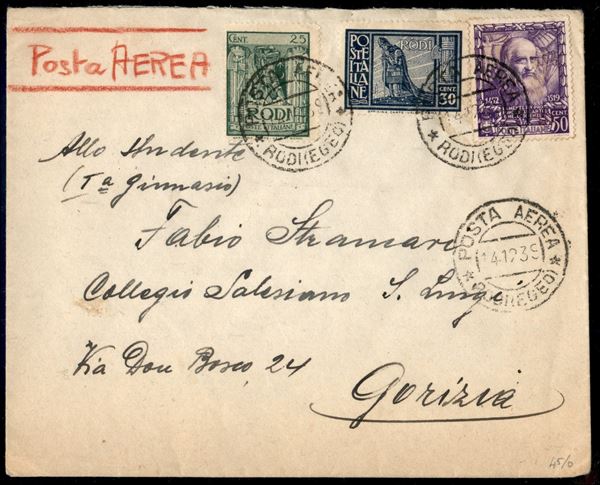 Posta AEREA
CENT. 25
RODI
POSTE ITALIANE
RODI
CENT 30
1452 1519
CENT 50
POSTA AEREA
RODI (EGEO)
Allo Studente
(Iª Ginnasio)
Fabio Stramare
Collegio Salesiano S. Luigi
Via Don Bosco, 24
Gorizia
POSTA AEREA
14.12.39
RODI (EGEO)
45/0